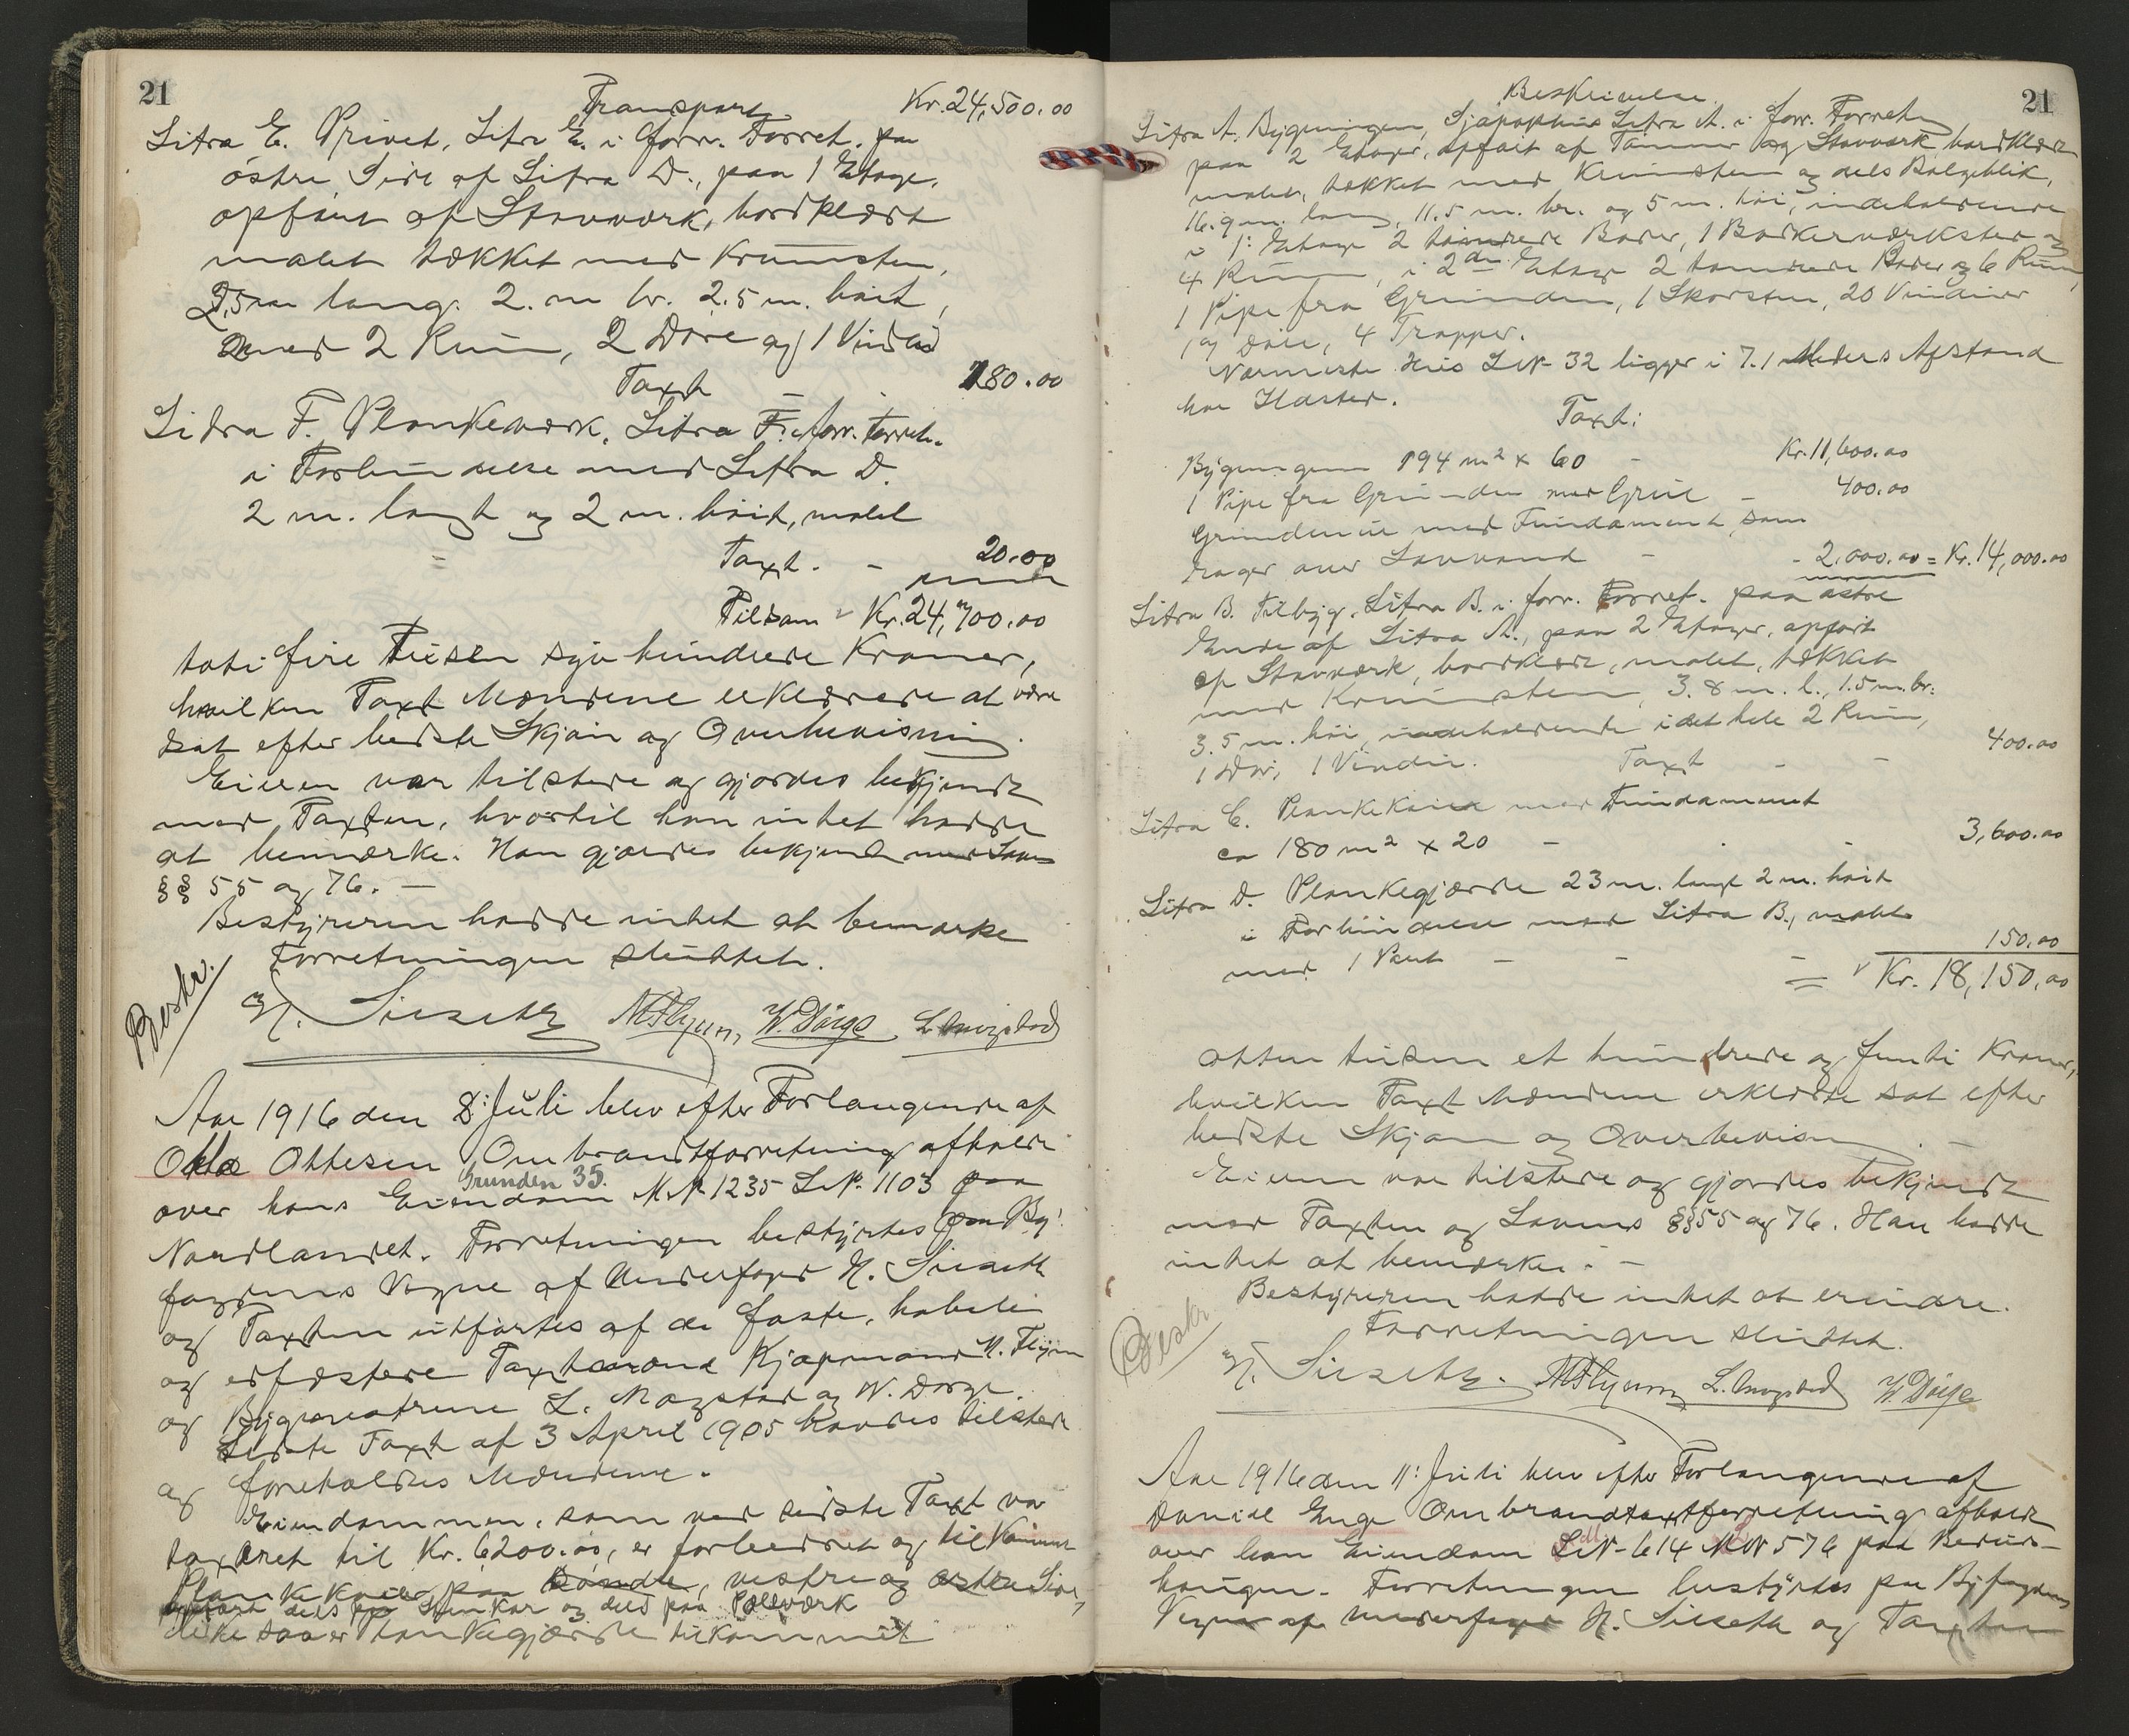 21
Transport Kr. 24,500.00
Litra E. Privet, Litr E. i forr. Forret. paa
östre Side af Litra D., paa 1 Etage.
opført af Stavværk, bordklædt
malet tækket med Krumsten,
2,5 m lang. 2. m br. 2.5 m. høit,
med 2 Rum, 2 Döre og 1 Vindu
Taxt - 180.00
Litra F. Plankeværk, Litra F. i forr. Forret.
i Forbindelse med Litra D.
2 m. langt og 2 m. höit, malet
Taxt. - 20.00
Tilsam Kr. 24,700.00
toti fire Tusen syv hundrede Kroner,
hvilken Taxt Mændene erklærede at være
sat efter bedste Skjön og Overbevisning.
Eieren var tilstede og gjordes bekjendt
med Taxten, hvortil han intet hadde
at bemærke. Han gjordes bekjendt med Lovens
§§ 55 og 76. —
Bestyreren hadde intet at bemærke
Forretningen sluttet.
Beskr.
N. Sieseth M Flyum, W. Döige L. Magstad
Aar 1916 den 8: Juli blev efter Forlangende af
Otto Ottesen Ombrandtforretning afholdt
Grunden 35.
over hans Eiendom M.N. 1235 L.N. 1103 paa
Nordlandet. Forretningen bestyrtes paa By-
fogdens Vegne af Underfoged N. Sieseth
og Taxten utförtes af de faste, habile
og edfæstede Taxtmænd Kjøpmand M. Flyum
og Bygmestrene L. Magstad og W. Dörge.
Sidste Taxt af 3 April 1905 havdes tilstede
og foreholdtes Mændene.
Eiendommen, som ved sidste Taxt var
taxeret til Kr. 6200.00, er forbedret og tilkommet
Plankekaier paa Söndre, vestre og östre Side,
opført dels paa Stenkar og dels paa Pæleværk
likesaa er Plankegjærde tilkommet
21
Beskrivelse
Litra A. Bygningen, Sjøpakhus Litra A. i forr. Forretn
paa 2 Etager, opført af Tømmer og Stavværk bordklædt
malet, tækket med Krumsten og dels Bølgeblik,
16.9 m. lang, 11.5 m. br. og 5 m. høi, indeholdende
i 1: Etage 2 tømrede Boder, 1 Bødkerværksted og
4 Rum, i 2den Etage 2 tømrede Boder og 6 Rum,
1 Pipe fra Grunden, 1 Skorsten, 20 Vinduer
19 Döre, 4 Trapper.
Nærmeste Hus L.N. 32 ligger i 7.1 Meters Afstand
har Ildsted.
Taxt:
Bygningen 194 m² x 60 - Kr. 11,600.00
1 Pipe fra Grunden med Grue - 400.00
Grundmur med Fundament, som
rager over Lavvand - - 2,000.00 = Kr. 14,000.00
Litra B. Tilbyg. Litra B. i forr. Forret. paa østre
Ende af Litra A., paa 2 Etager, opført
af Stavværk, bordklædt, malet, tækket
med Krumsten, 3.8 m. l., 1.5 m. br.
3.5 m. höi, indeholdende i det hele 2 Rum,
1 Dör, 1 Vindu. Taxt - - 400.00
Litra C. Plankekaier med Fundament
ca 180 m² x 20 - - 3,600.00
Litra D. Plankegjærde 23 m. langt 2 m. höit
i Forbindelse med Litra B., malet
med 1 Port - - - 150.00
= Kr. 18,150.00
otten tusen et hundrede og femti Kroner,
hvilken Taxt Mændene erklærte sat efter
bedste Skjøn og Overbevisning. —
Eieren var tilstede og gjordes bekjendt
med Taxten og Lovens §§ 55 og 76. Han hadde
intet at bemærke. —
Bestyreren hadde intet at erindre.
Forretningen sluttet.
Beskr
N. Sieseth. M Flyum L. Magstad W Döige
Aar 1916 den 11: Juli blev efter Forlangende af
Daniel Enge Ombrandtaxtforretning afholdt
over han Eiendom L.N. 614 M.N. 576 paa Bedürs-
haugen. Forretningen bestyrtes paa Byfogdens
Vegne af Underfoged N. Sieseth og Taxten